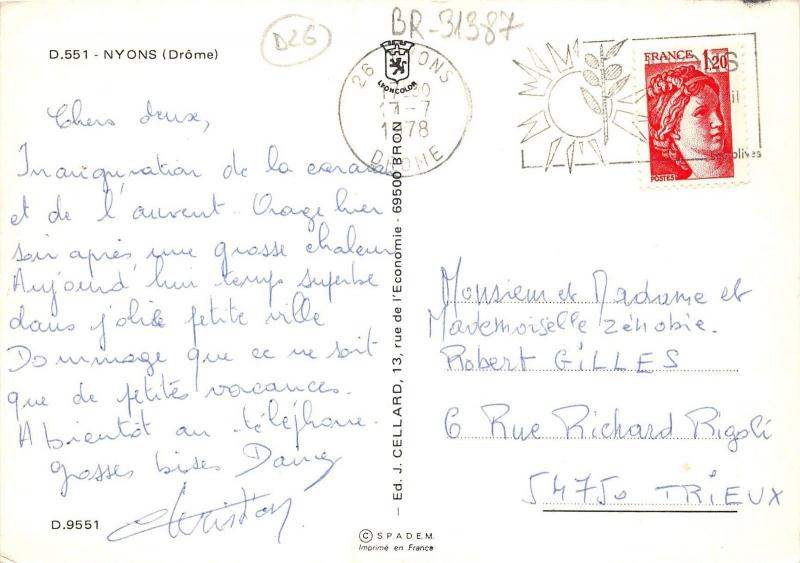 BR-31387
D26
D.551 - NYONS (Drôme)
LYONCOLOR
26 NYONS
17-7
1978
DROME
FRANCE 1,20
POSTES
olives
Chers deux,
Inauguration de la caravane
et de l'auvent. Orage hier
soir après une grosse chaleur
Aujourd'hui temps superbe
dans jolie petite ville
Dommage que ce ne soit
que de petites vacances.
A bientôt au téléphone.
grosses bises
D.9551
Ed. J. CELLARD, 13, rue de l'Economie - 69500 BRON
Monsieur et Madame et
Mademoiselle Zénobie.
Robert GILLES
6 Rue Richard Rigoli
54750 TRIEUX
© S.P.A.D.E.M.
Imprimé en France